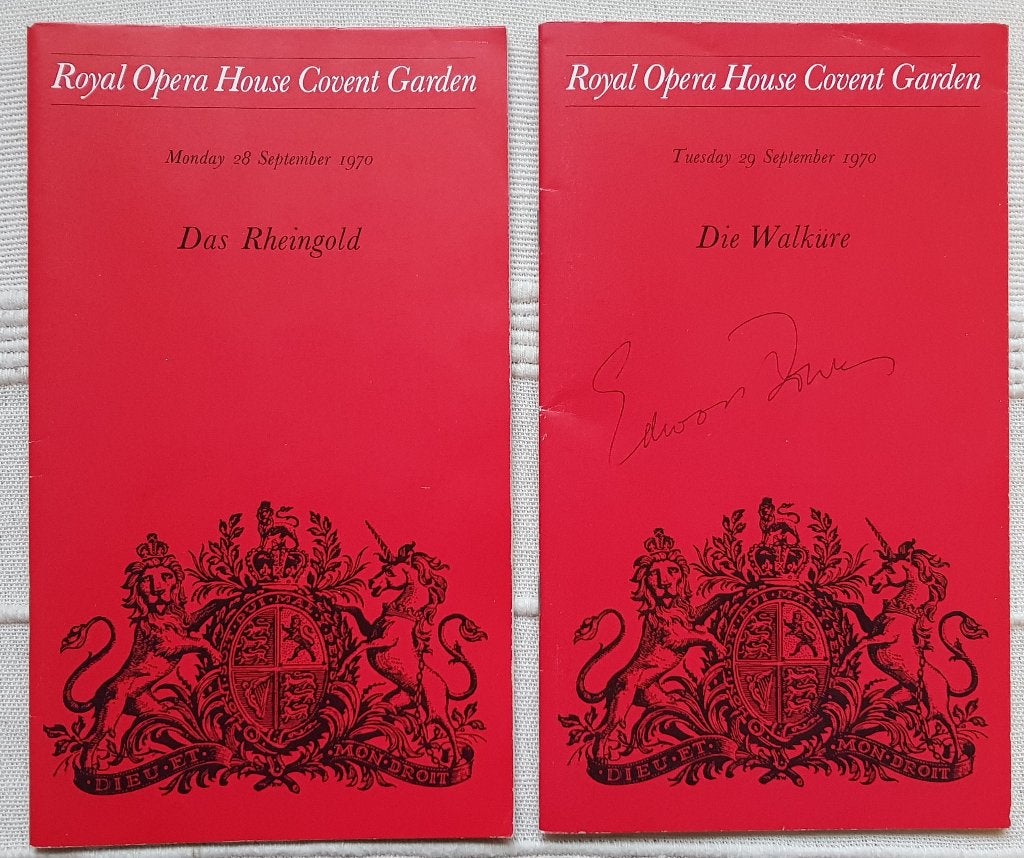 Royal Opera House Covent Garden
Monday 28 September 1970
Das Rheingold
DIEU·ET·
MON·DROIT
Royal Opera House Covent Garden
Tuesday 29 September 1970
Die Walküre
Edward Downes
DIEU·ET·
MON·DROIT